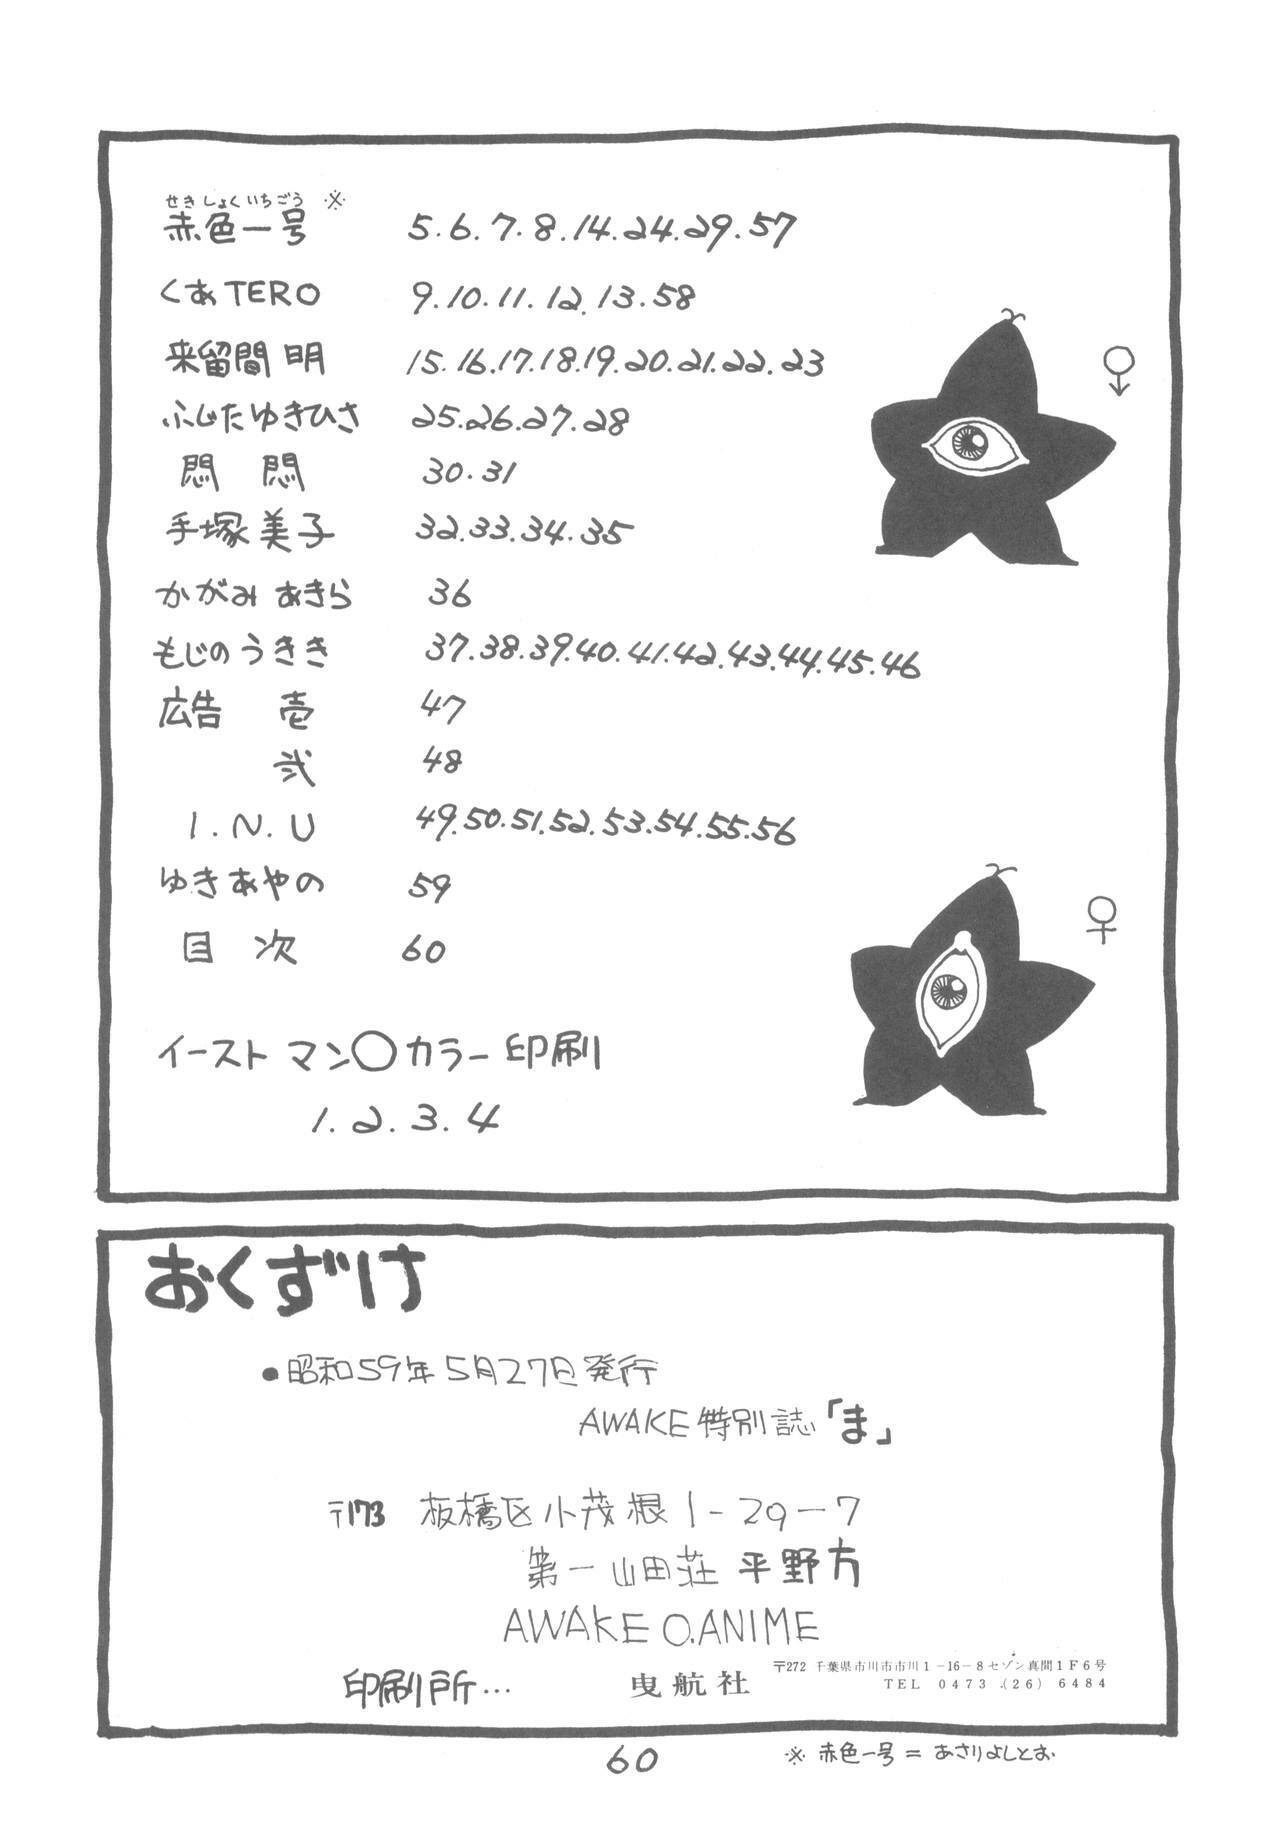 せきしょくいちごう ※
赤色一号 5.6.7.8.14.24.29.57
くあTERO 9.10.11.12.13.58
来留間 明 15.16.17.18.19.20.21.22.23
ふじたゆきひさ 25.26.27.28
悶 悶 30.31
手塚美子 32.33.34.35
かがみあきら 36
もじのうきき 37.38.39.40.41.42.43.44.45.46
広告 壱 47
弐 48
I.N.U 49.50.51.52.53.54.55.56
ゆきあやの 59
目 次 60
イースト マン○カラー印刷
1.2.3.4
♂
♀
おくずけ
●昭和59年5月27日発行
AWAKE特別誌「ま」
〒173 板橋区小茂根1-29-7
第一山田荘 平野方
AWAKE O.ANIME
印刷所… 曳航社 〒272 千葉県市川市市川1-16-8セゾン真間1F6号
TEL 0473 (26) 6484
60
※ 赤色一号 = あさりよしとお